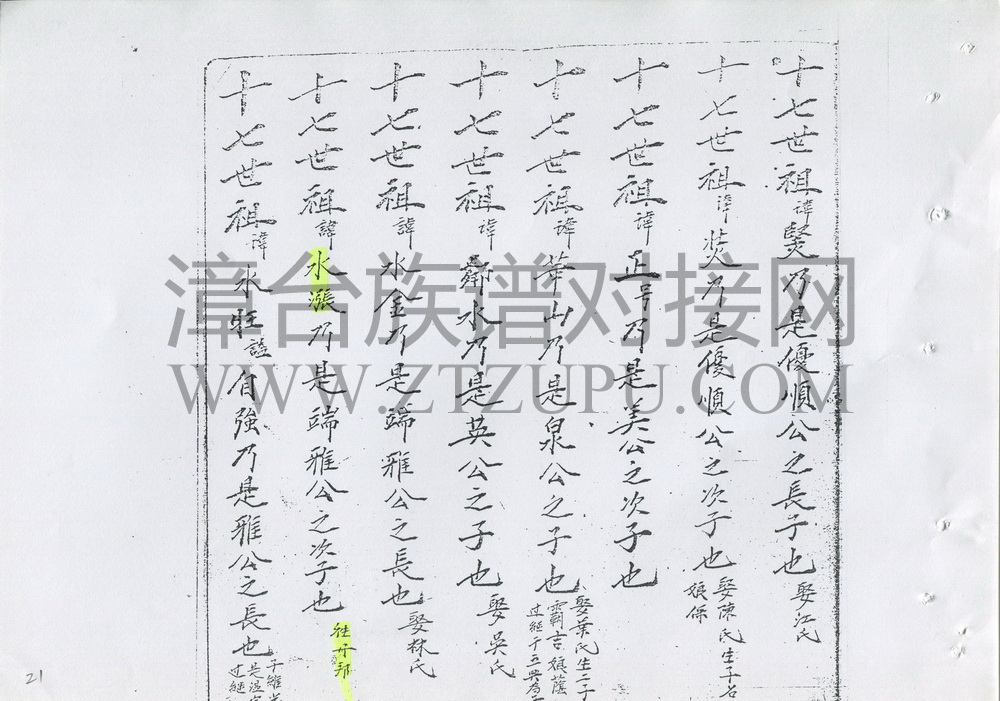 十七世祖諱熒乃是優順公之長子也 娶江氏
十七世祖諱焋乃是優順公之次子也 娶陳氏生子名
娘保
十七世祖諱正号乃是美公之次子也
十七世祖諱華山乃是泉公之子也 娶葉氏生二子
霸吉娘蔭
过継于五典為
十七世祖諱水乃是英公之子也 娶吳氏
十七世祖諱水金乃是端雅公之長也 娶林氏
十七世祖諱水漲乃是端雅公之次子也 往丹邦
十七世祖諱水牲謚自強乃是雅公之長也 子維
是温
过継
21
漳台族谱对接网
WWW.ZTZUPU.COM